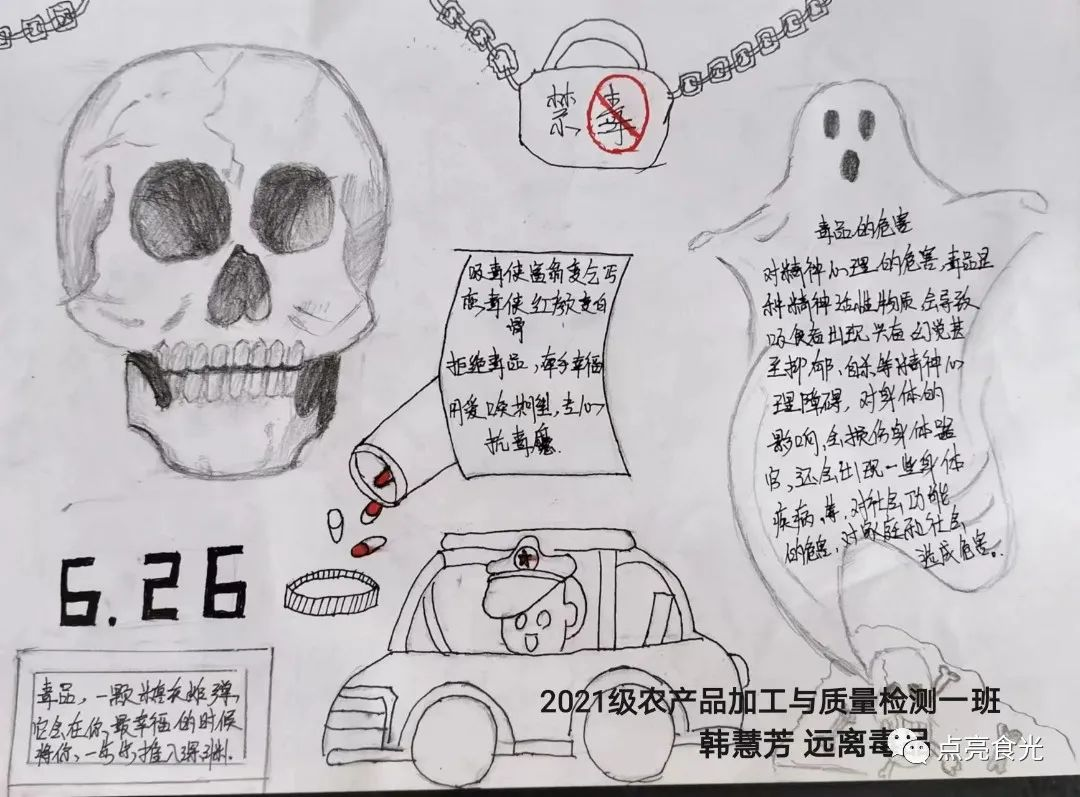 禁毒
毒品的危害
对精神心理的危害,毒品是
种精神活性物质,会导致
吸食者出现兴奋幻觉甚
至抑郁,自杀等对精神心
理障碍,对身体的
影响,会损伤身体器
官,还会出现一些身体
疾病,等,对社会功能
的危害,对家庭和社会
造成危害。
吸毒使富翁变乞丐
毒使红颜变白
骨
拒绝毒品,牵手幸福
用爱唤
抗毒
6.26
毒品,一颗炸弹,
它会在你最幸福的时候
将你一步步推入深渊.
2021级农产品加工与质量检测一班
韩慧芳 远离毒品
点亮食光